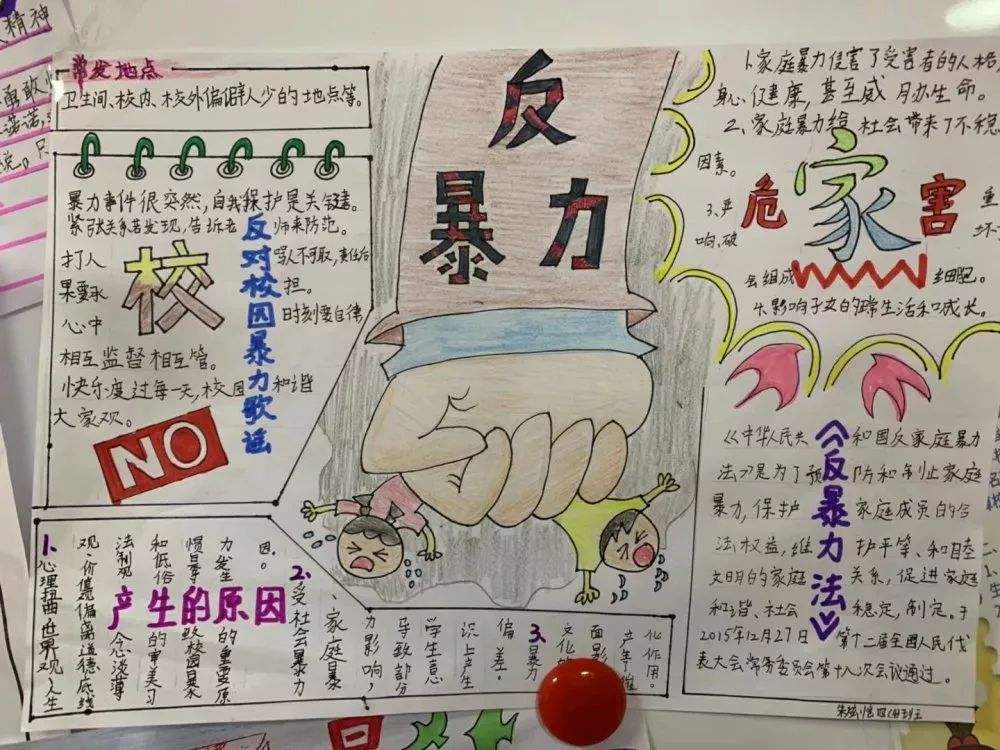 精神
勇敢
诺诺,
常发地点
卫生间、校内、校外偏僻人少的地点等。
反
暴力
暴力事件很突然,自我保护是关键。
紧张关系若发现,告诉老师来防范。
打人骂人不可取,责任后
果要承担。
心中时刻要自律
相互监督相互管。
快乐度过每一天,校园和谐
大家观。
校
反对校园暴力歌谣
NO
1.家庭暴力侵害了受害者的人格
身心健康,甚至威胁生命。
2、家庭暴力给社会带来了不稳
因素。
3、严重
响、破坏
会组成细胞。
4.影响子女的日常生活和成长。
危家害
《中华人民共和国反家庭暴力
法》是为了预防和制止家庭
暴力,保护家庭成员的合
法权益,维护平等、和睦
文明的家庭关系,促进家庭
和谐、社会稳定,制定。于
2015年12月27日第十二届全国人民代
表大会常务委员会第十八次会议通过。
《反暴力法》
产生的原因
1.心理扭曲世界观人生
观、价值偏离道德底线
法制观念淡薄
和低俗的审美习
惯是导致校园暴
力发生的重要原
因。
2.受社会暴力
、家庭暴
力影响,
导致部分
学生意
识上产生
偏差。
3.暴力
文化的
面影
立竿催
化作用。